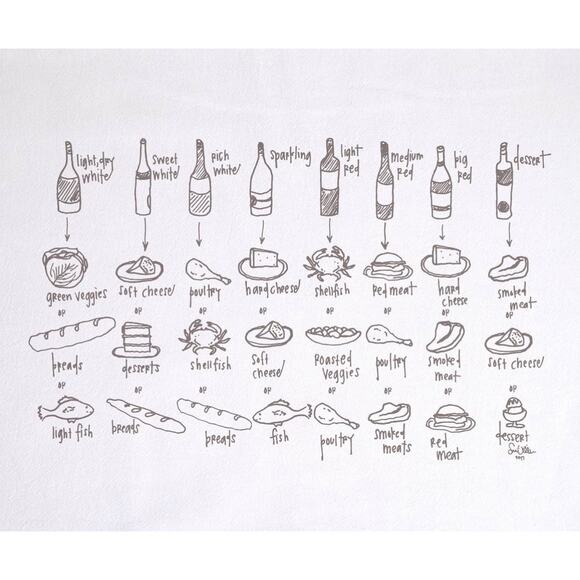 light, dry
white
sweet
white
rich
white
sparkling
light
red
medium
red
big
red
dessert
green veggies
soft cheese
poultry
hard cheese
shellfish
red meat
hard
cheese
smoked
meat
or
or
or
or
or
or
or
or
breads
desserts
shellfish
soft
cheese
roasted
veggies
poultry
smoked
meat
soft cheese
or
or
or
or
or
or
or
or
light fish
breads
breads
fish
poultry
smoked
meats
red
meat
dessert